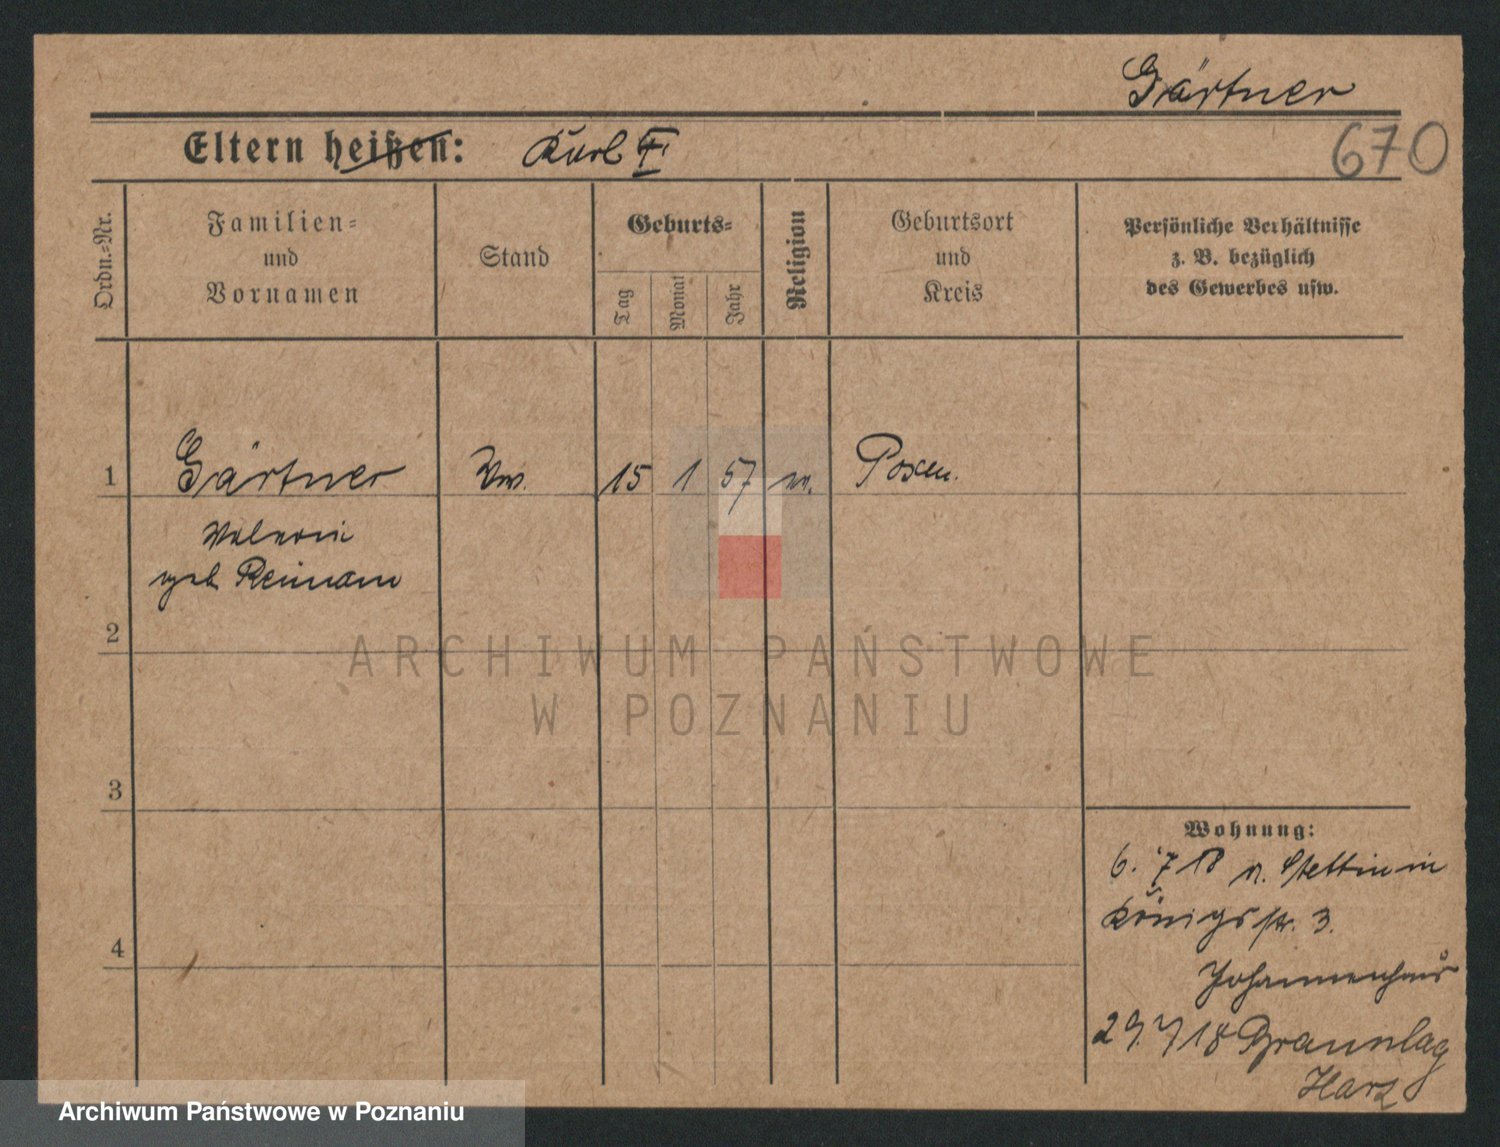 Gärtner
Eltern heißen: Karl
670
Ordn.-Nr.
Familien-
und
Vornamen
Stand
Geburts-
Tag
Monat
Jahr
Religion
Geburtsort
und
Kreis
Persönliche Verhältnisse
z. B. bezüglich
des Gewerbes usw.
1 Gärtner Ww. 15 1 57 Posen.
geb Reimann
2
ARCHIWUM PAŃSTWOWE
W POZNANIU
3
Wohnung:
6. 7 18 n. Stettin in
Königsstr. 3.
4
29. 7 18 Braunlag
Harz
Archiwum Państwowe w Poznaniu